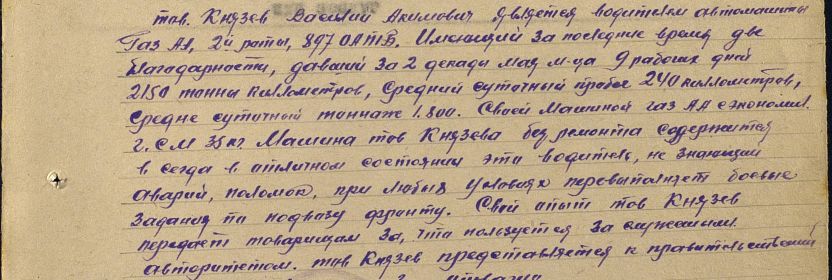 тов. Князев Василий Акимович является водителем автомашины
Газ АА, 2й роты, 897 ОАТБ. Имеющий за последние время две
благодарности, давший за 2 декады мая м-ца 9 рабочих дней
2150 тонны киллометров, средний суточный пробег 240 киллометров,
средне суточный тоннаж 1.800. Своей Машиной газ АА сэкономил
г.с.м 35 кг. Машина тов Князева без ремонта содержится
в сегда в отличном состоянии эта водитель, не знающий
аварий, поломок, при любых условиях перевыполняет боевые
задания по подвозу фронту. Свой опыт тов Князев
передает товарищам за, что пользуется заслуженным
авторитетом. тов Князев представляется к правительственной